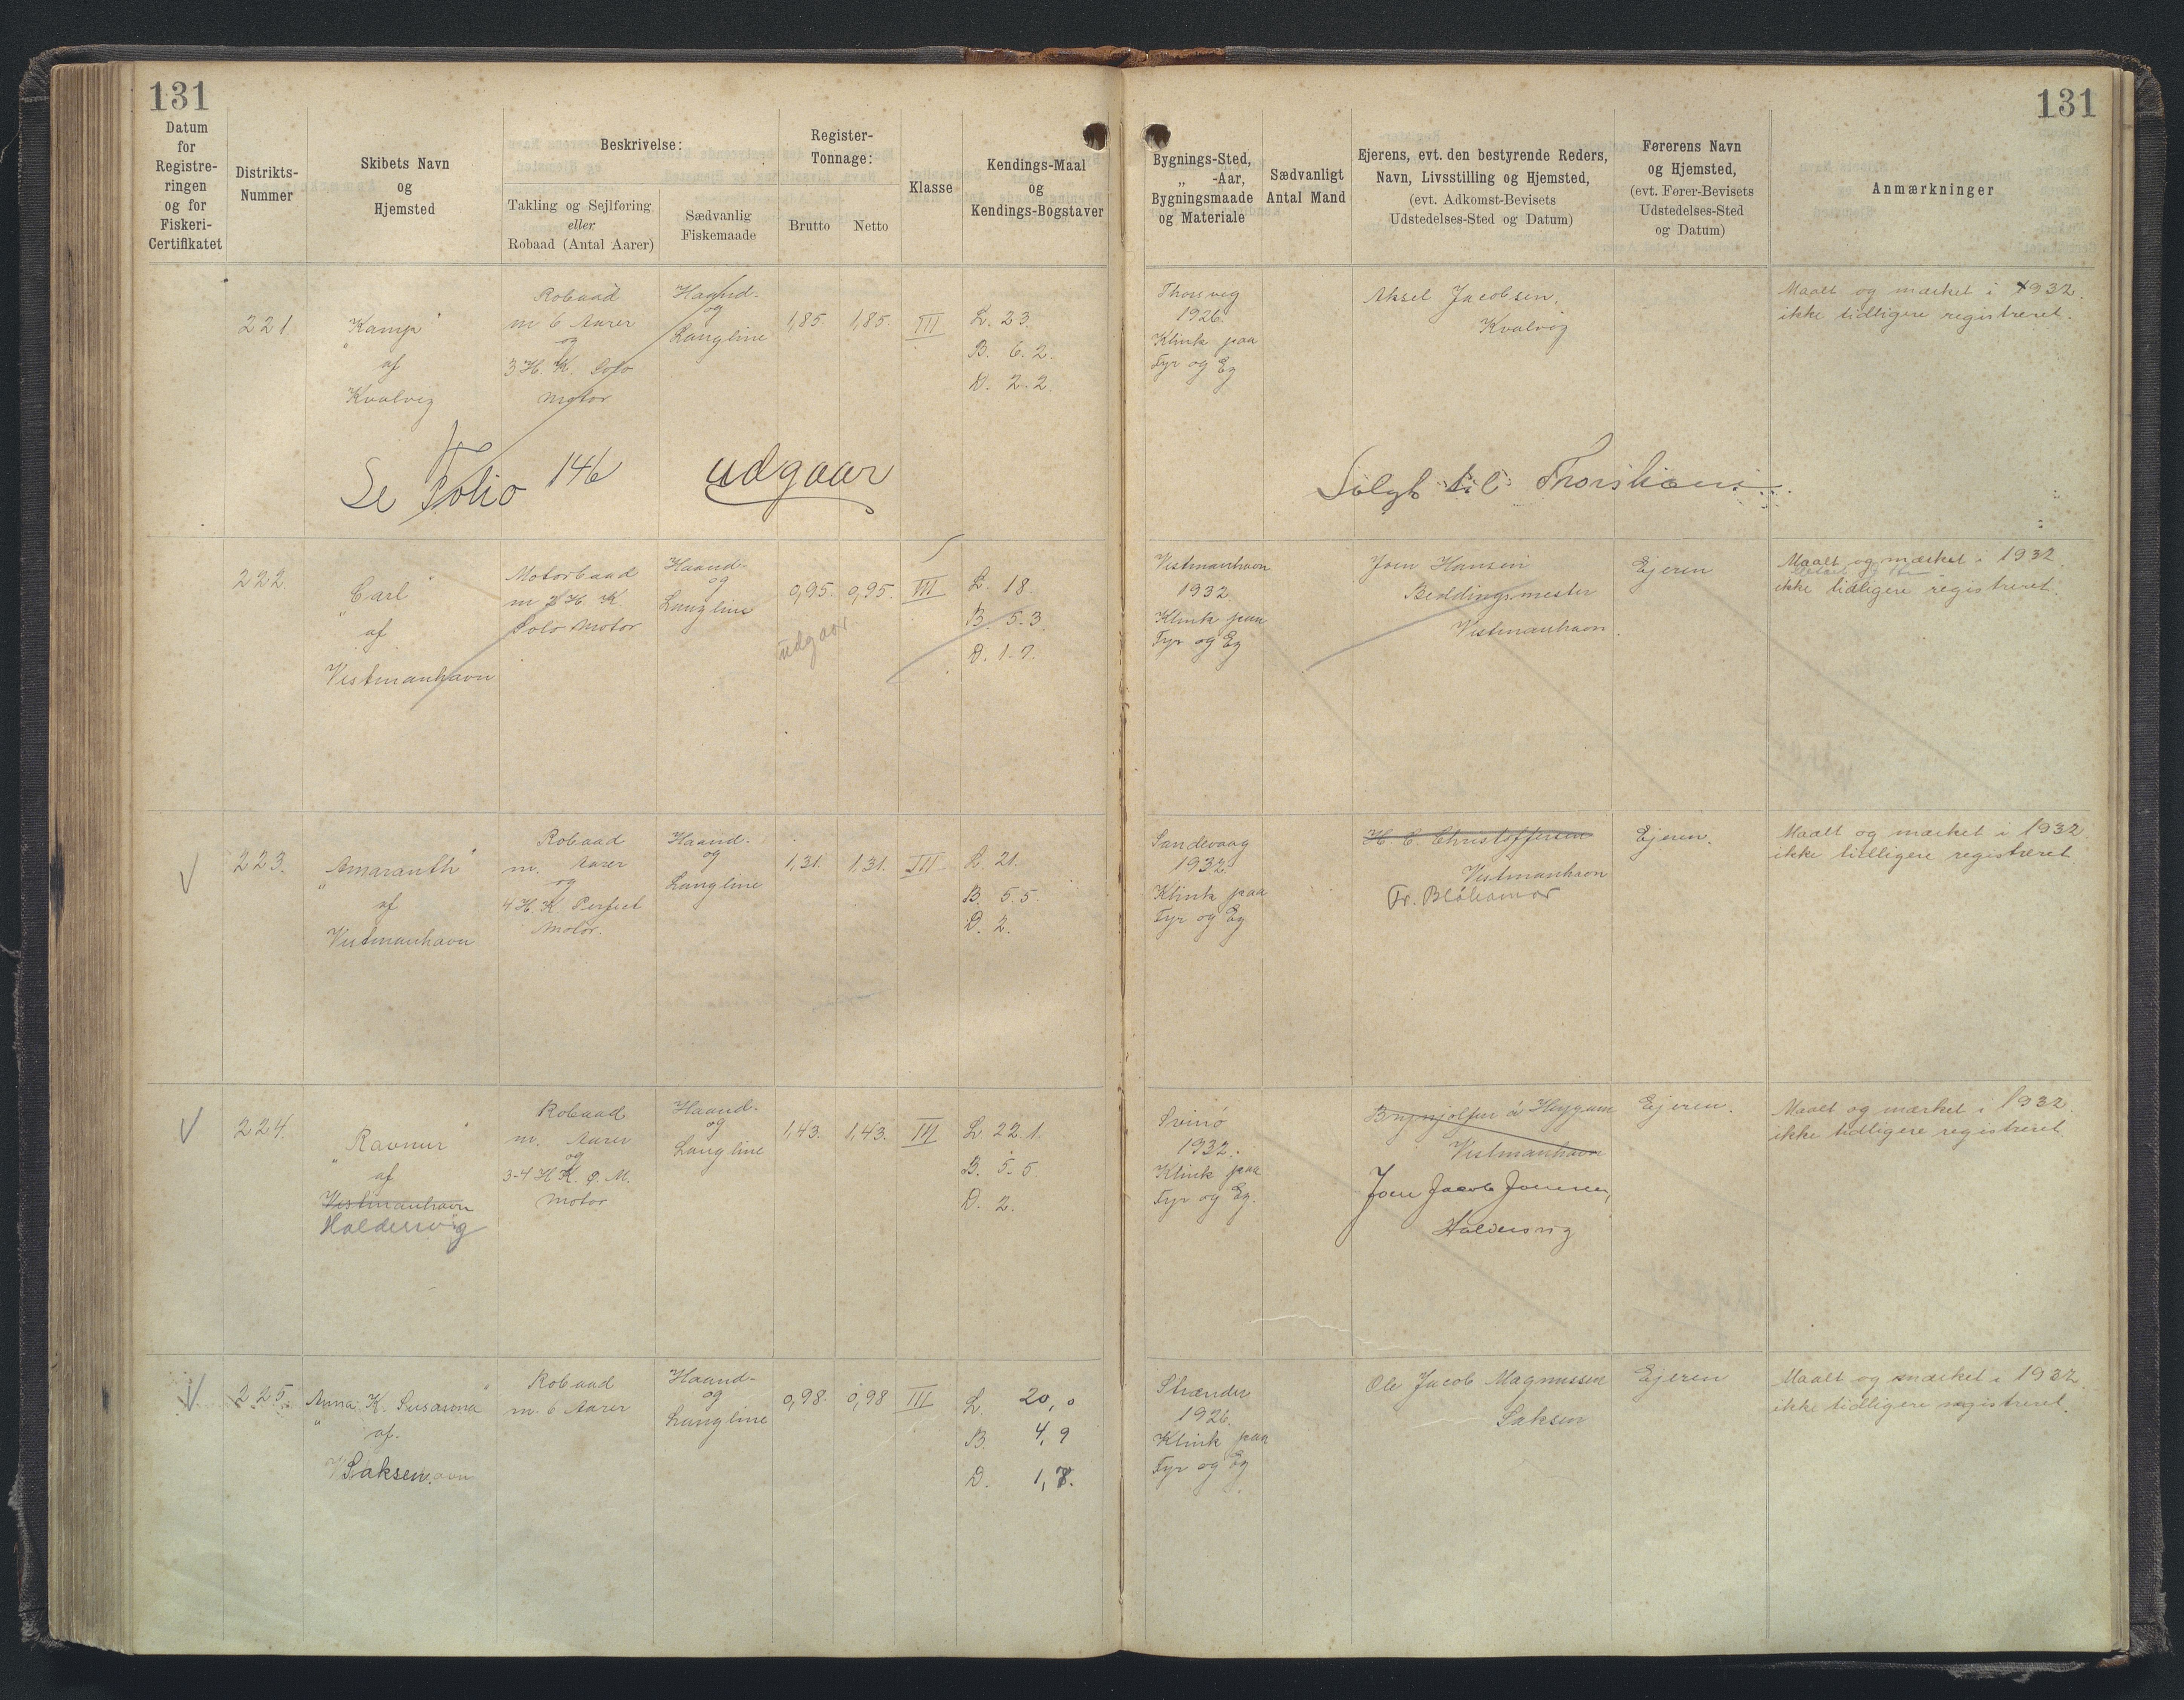 131
131
Datum
for
Registre-
ringen
og for
Fiskeri-
Certifikatet
Distrikts-
Nummer
Skibets Navn
og
Hjemsted
Beskrivelse:
Takling og Sejlføring
eller
Robaad (Antal Aarer)
Sædvanlig
Fiskemaade
Register-
Tonnage:
Brutto
Netto
Klasse
Kendings-Maal
og
Kendings-Bogstaver
Bygnings-Sted,
„ -Aar,
Bygningsmaade
og Materiale
Sædvanligt
Antal Mand
Ejerens, evt. den bestyrende Reders,
Navn, Livsstilling og Hjemsted,
(evt. Adkomst-Bevisets
Udstedelses-Sted og Datum)
Førerens Navn
og Hjemsted,
(evt. Fører-Bevisets
Udstedelses-Sted
og Datum)
Anmærkninger
221.
„Kamp"
af
Kvalvig
Robaad
m 6 Aarer
og
3 H. K. Solo
Motor
Haand-
og
Langline
1,85.
1,85.
III
L. 23.
B. 6.2.
D. 2.2.
Thorsvig
1926.
Klink paa
Fyr og Eg
Aksel Jacobsen,
Kvalvig
Maalt og mærket i 1932.
ikke tidligere registreret.
Se Folio 146
udgaar
Solgt til Thorshavn
222
„Carl"
af
Vestmanhavn
Motorbaad
m 2 H. K.
Solo Motor
Haand-
og
Langline
0,95.
0,95.
III
udgaar
L. 18.
B. 5.3.
D. 1.7.
Vestmanhavn
1932.
Klink paa
Fyr og Eg
Joen Hansen
Beddingsmester
Vestmanhavn.
Ejeren
Maalt og mærket i 1932.
ikke tidligere registreret.
223.
„Amaranth"
af
Vestmanhavn
Robaad
m. Aarer
og
4 H. K. Perfect
Motor.
Haand-
og
Langline
1,31.
1,31.
III
L. 21.
B. 5.5.
D. 2.
Sandevaag
1932.
Klink paa
Fyr og Eg
H. C. Christoffersen
Vestmanhavn
Fr. Bláhamar
Ejeren.
Maalt og mærket i 1932.
ikke tidligere registreret.
224.
„Ravnur"
af
Vestmanhavn
Haldersvig
Robaad
m. Aarer
og
3-4 H.K. G. M.
Motor
Haand-
og
Langline
1,43.
1,43.
III
L. 22.1.
B. 5.5.
D. 2.
Svinø
1932.
Klink paa
Fyr og Eg.
Brynjolfur á Heygum
Vestmanhavn
Joen Jacob Joensen,
Haldersvig
Ejeren.
Maalt og mærket i 1932.
ikke tidligere registreret
225.
„Anna K. Susanna"
af.
Saksen.
Robaad
m. 6 Aarer
Haand-
og
Langline
0,98.
0,98
III
L. 20,0
B. 4,9
D. 1,8.
Strænder
1926.
Klink paa
Fyr og Eg
Ole Jacob Magnussen
Saksen
Ejeren
Maalt og mærket i 1932.
ikke tidligere registreret.